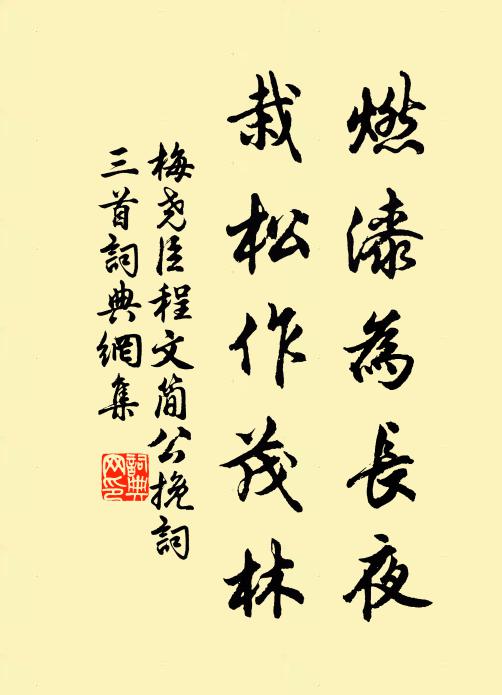 燃漆為長夜
栽松作茂林
梅堯臣程文簡公挽詞
三首詞典網集
詞典
网印